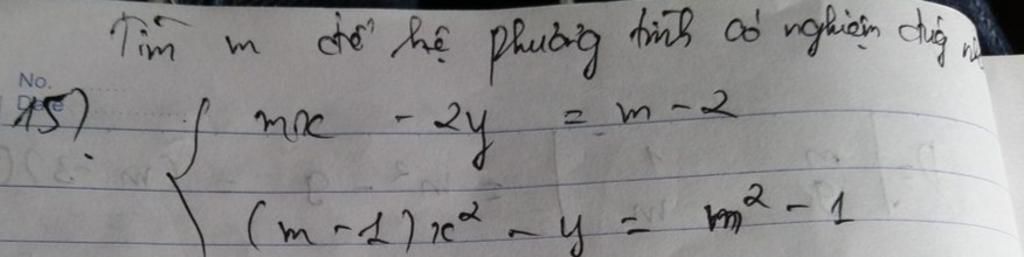 Tìm m để hệ phương trình có nghiệm
No.
Date
15)
mx - 2y = m - 2
(m - 1)x² - y = m² - 1